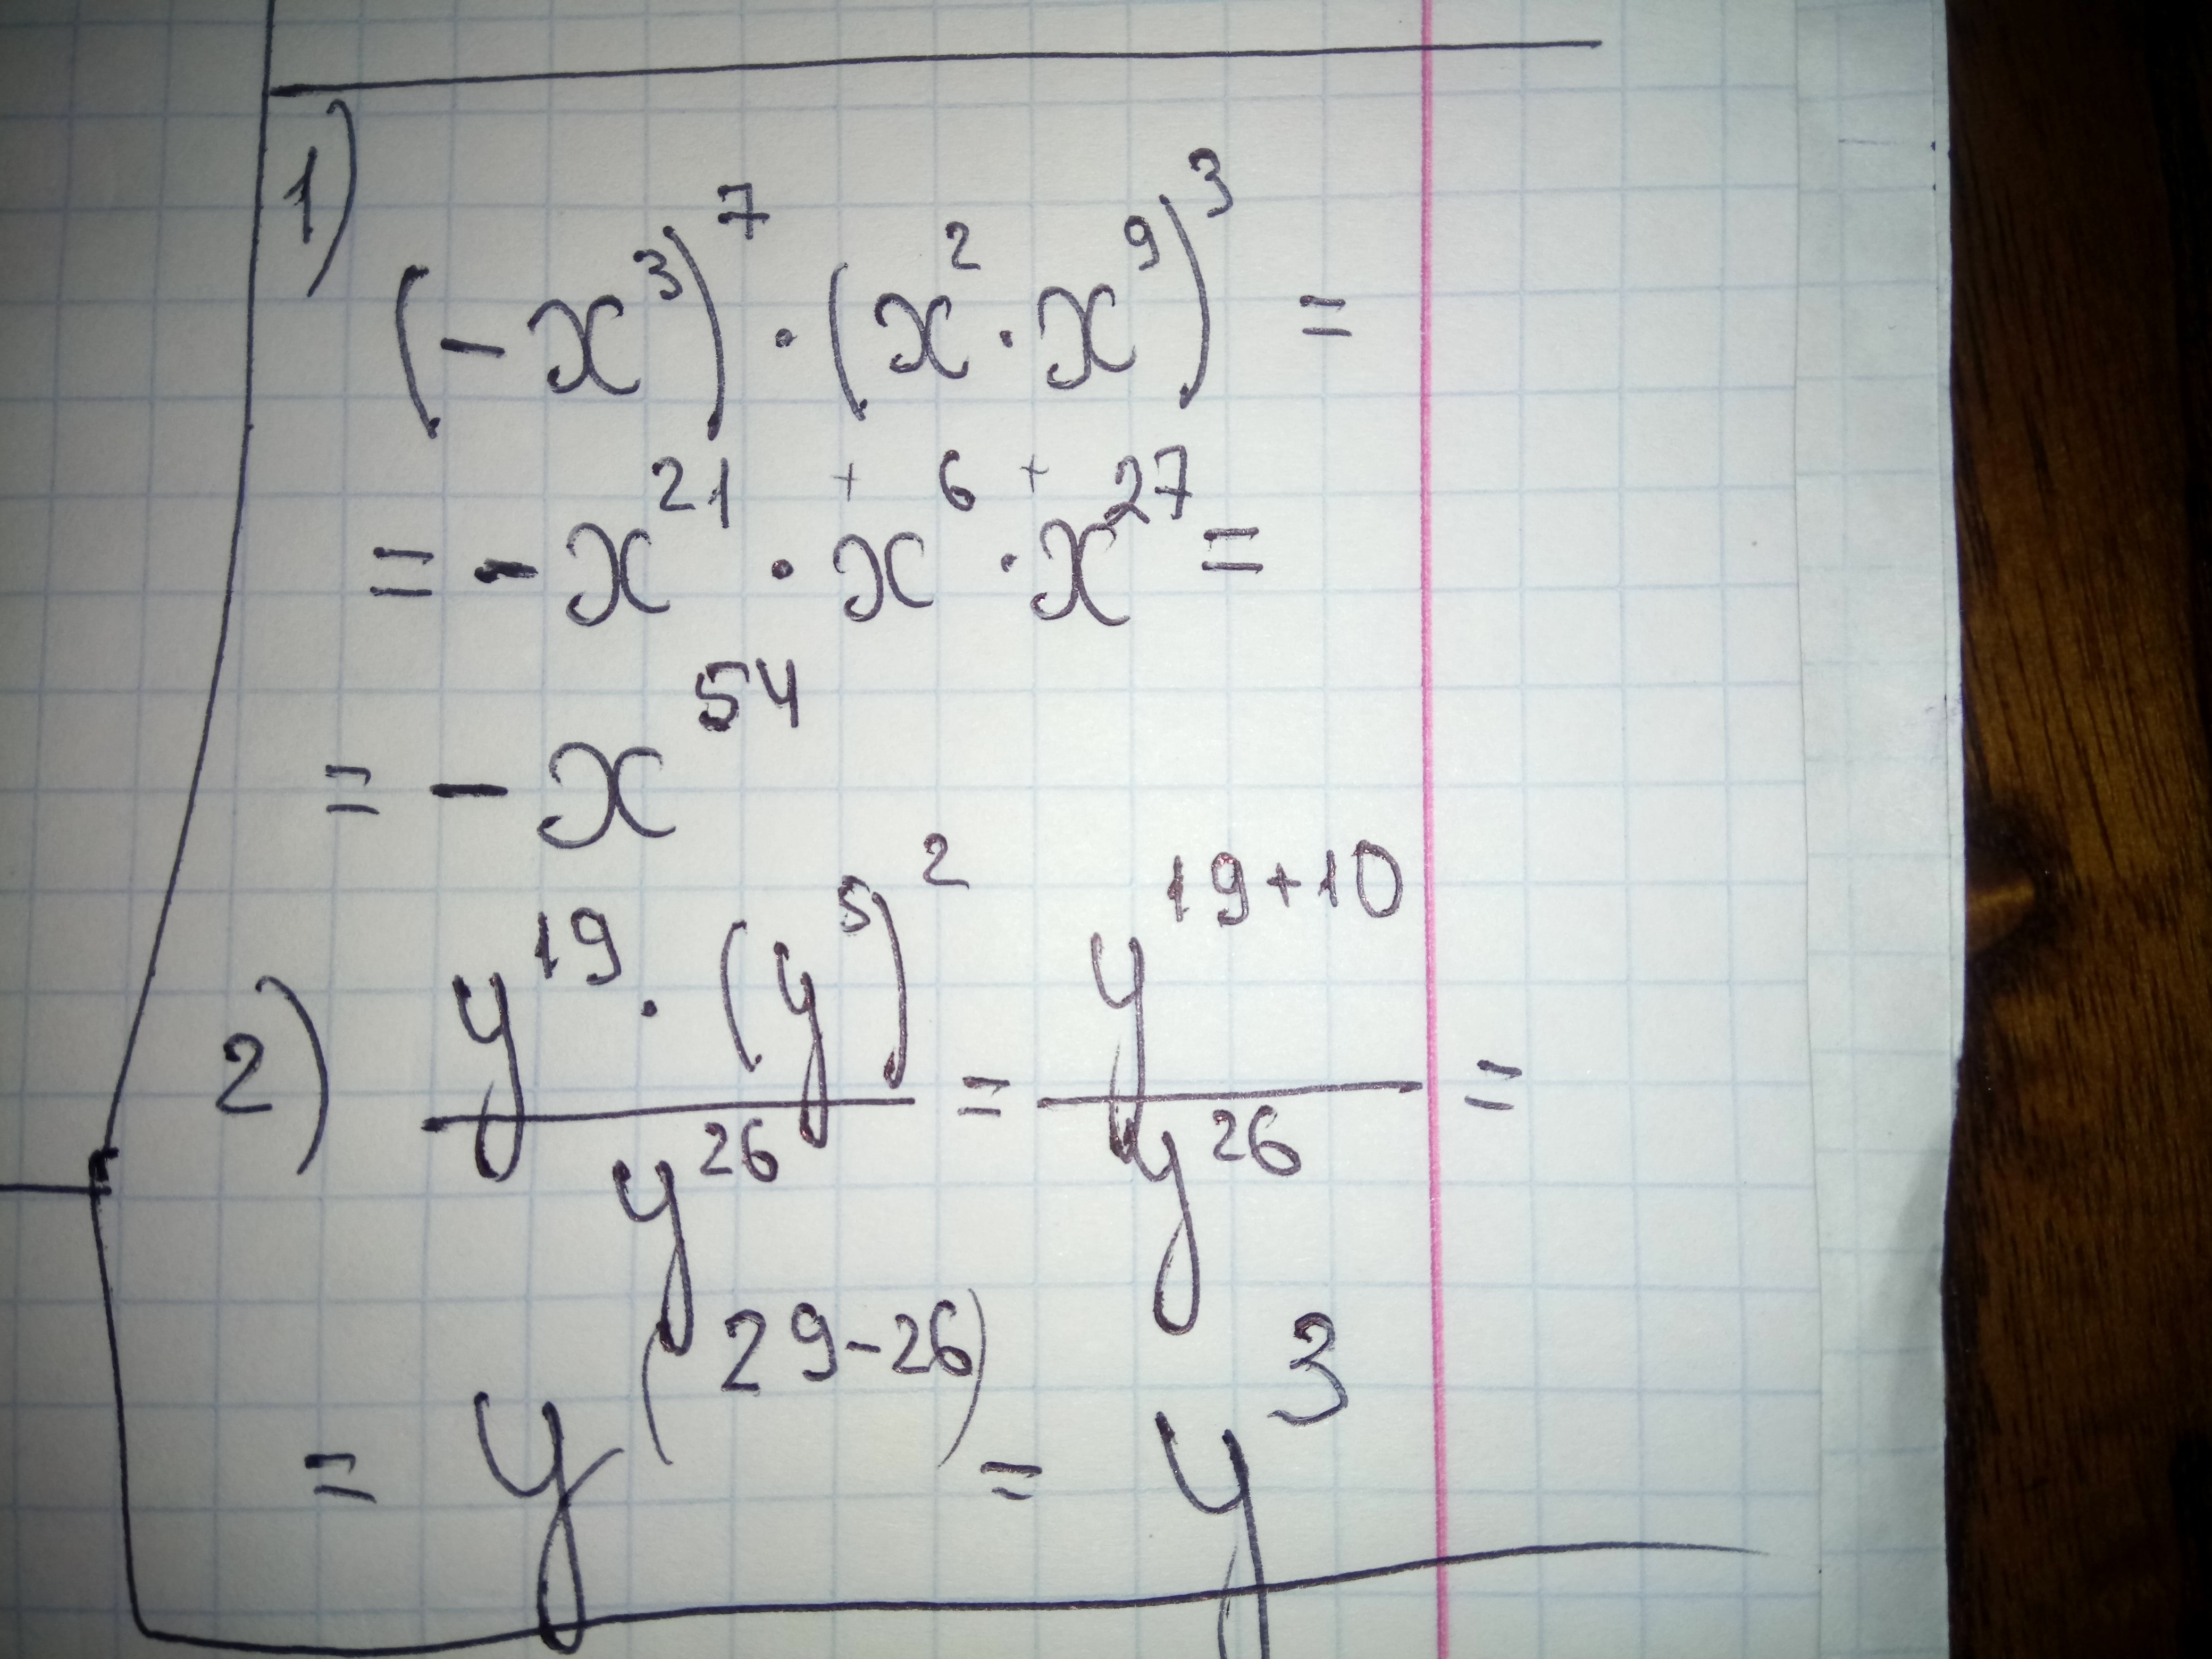 1)
(-x³)⁷ · (x² · x⁹)³ =
= -x²¹ · x⁶ · x²⁷ =
+ +
= -x⁵⁴
2) y¹⁹ · (y⁵)² / y²⁶ = y¹⁹⁺¹⁰ / y²⁶ =
= y⁽²⁹⁻²⁶⁾ = y³